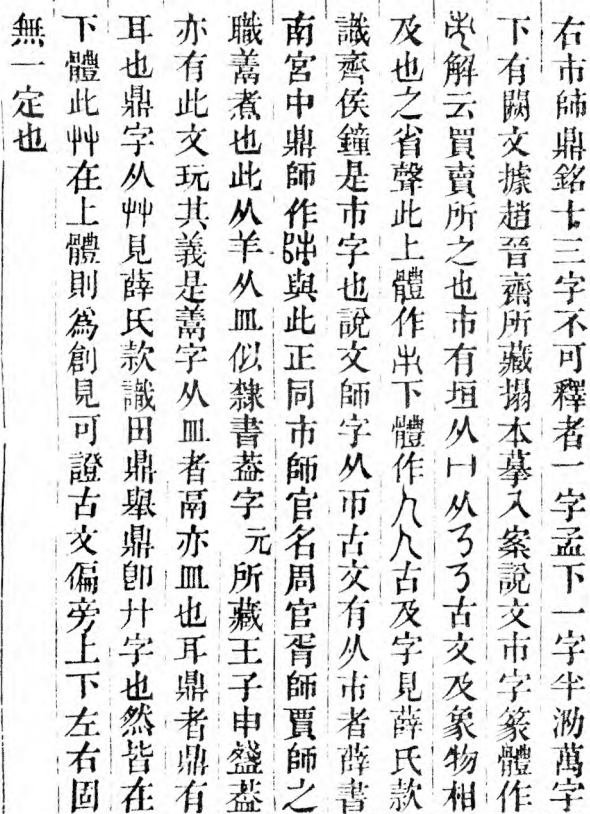 右市師鼎銘十三字不可釋者一字孟下一字半泐萬字
下有闕文據趙晉齋所藏搨本摹入案說文市字篆體作
解云買賣所之也市有垣从冂从㇋㇋古文及象物相
及也之省聲此上體作㞢下體作古及字見薛氏款
識齊侯鐘是市字也說文師字从帀古文有从巿者薛書
南宮中鼎師作與此正同市師官名周官胥師賈師之
職鬻煮也此从羊从皿似隸書葢字元所藏王子申盨葢
亦有此文玩其義是鬻字从皿者鬲亦皿也耳鼎者鼎有
耳也鼎字从艸見薛氏款識田鼎舉鼎卽廾字也然皆在
下體此艸在上體則爲創見可證古文偏旁上下左右固
無一定也